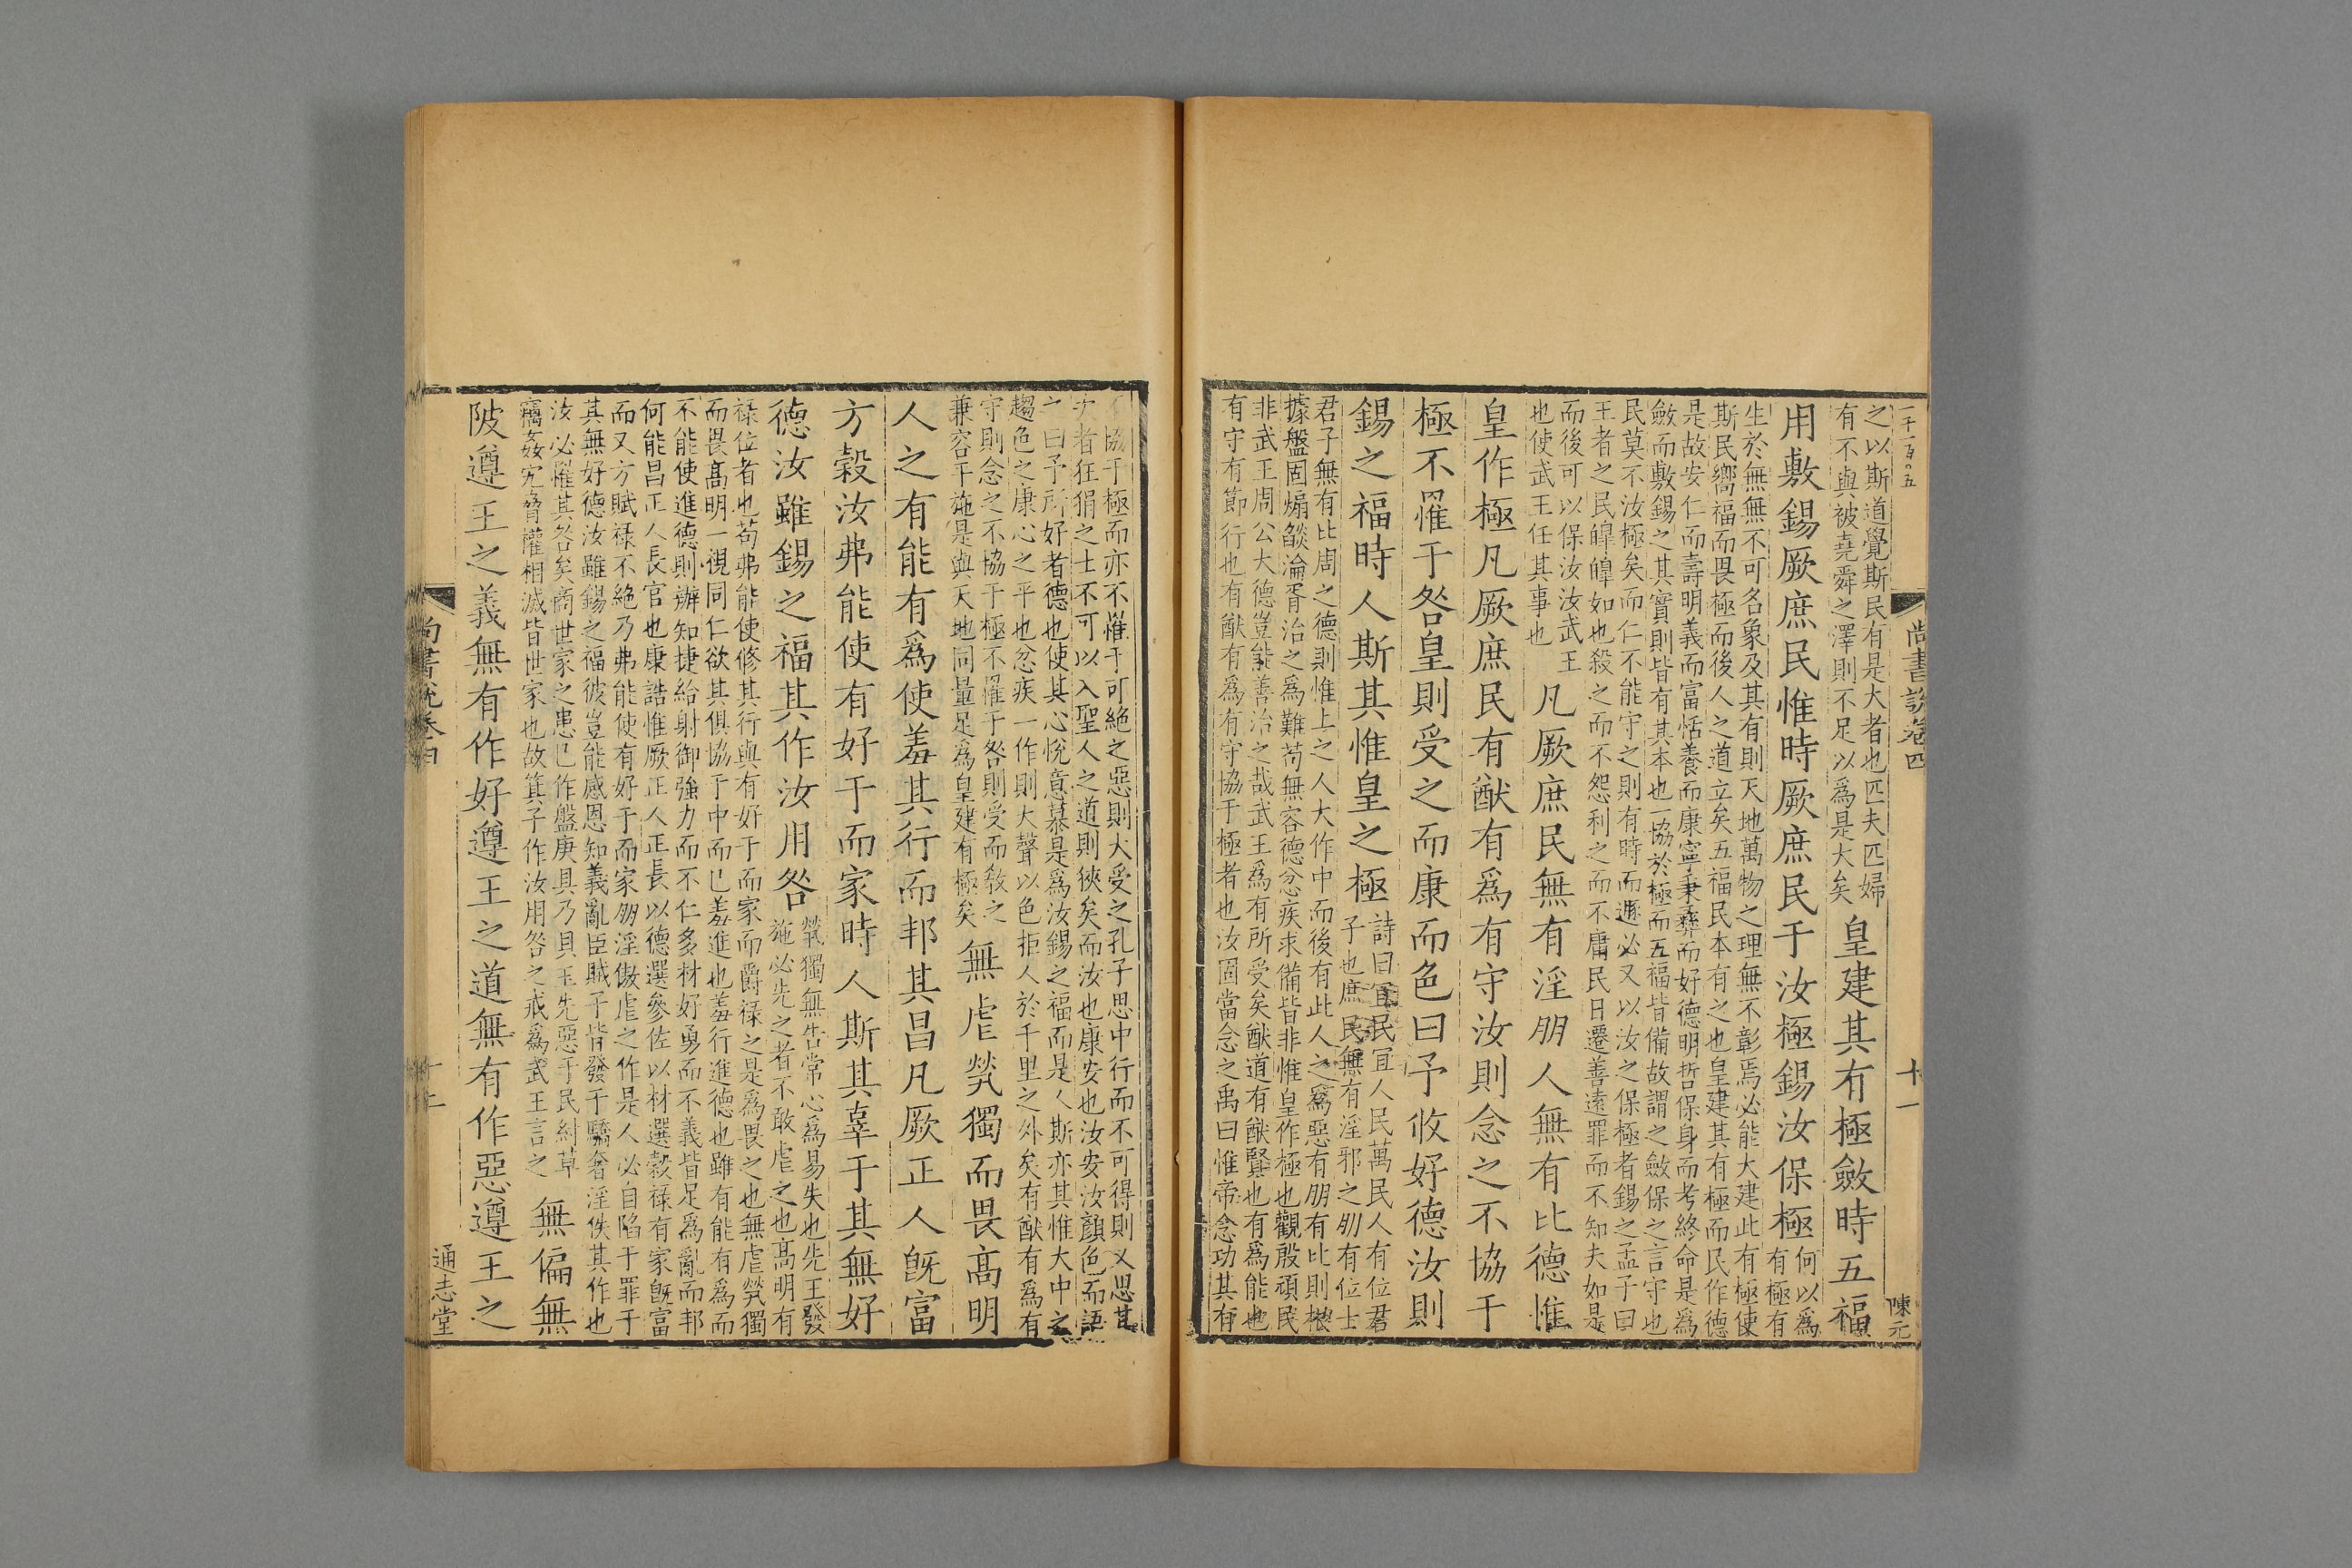 二千一百〇五
尚書說卷四
十一
陳元
之以斯道覺斯民有是大者也匹夫匹婦
有不與被堯舜之澤則不足以爲是大矣
皇建其有極斂時五福
用敷錫厥庶民惟時厥庶民于汝極錫汝保極
何以爲
有極有
生於無無不可名象及其有則天地萬物之理無不彰焉必能大建此有極使
斯民嚮福而畏極而後人之道立矣五福民本有之也皇建其有極而民作德
是故安仁而壽明義而富恬養而康寧秉彝而好德明哲保身而考終命是爲
斂而敷錫之其實則皆有其本也一協於極而五福皆備故謂之斂保之言守也
民莫不汝極矣而仁不能守之則有時而遯必又以汝之保極者錫之孟子曰
王者之民皥皥如也殺之而不怨利之而不庸民日遷善遠罪而不知夫如是
而後可以保汝汝武王
也使武王任其事也
凡厥庶民無有淫朋人無有比德惟
皇作極凡厥庶民有猷有爲有守汝則念之不協于
極不罹于咎皇則受之而康而色曰予攸好德汝則
錫之福時人斯其惟皇之極
詩曰宜民宜人民萬民人有位君
子也庶民無有淫邪之朋有位士
君子無有比周之德則惟上之人大作中而後有此人之爲惡有朋有比則根
據盤固煽燄淪胥治之爲難苟無容德忿疾求備皆非惟皇作極也觀殷頑民
非武王周公大德豈能善治之哉武王爲有所受矣猷道有猷賢也有爲能也
有守有節行也有猷有爲有守協于極者也汝固當念之禹曰惟帝念功其有
不協于極而亦不罹于可絶之惡則大受之孔子思中行而不可得則又思其
次者狂狷之士不可以入聖人之道則狹矣而汝也康安也汝安汝顏色而語
之曰予所好者德也使其心悅意慕是爲汝錫之福而是人斯亦其惟大中之
趨色之康心之平也忿疾一作則大聲以色拒人於千里之外矣有猷有爲有
守則念之不協于極不罹于咎則受而敎之
兼容平施是與天地同量足爲皇建有極矣
無虐煢獨而畏高明
人之有能有爲使羞其行而邦其昌凡厥正人旣富
方穀汝弗能使有好于而家時人斯其辜于其無好
德汝雖錫之福其作汝用咎
煢獨無告常心爲易失也先王發
施必先之者不敢虐之也高明有
祿位者也苟弗能使修其行與有好于而家而爵祿之是爲畏之也無虐煢獨
而畏高明一視同仁欲其俱協于中而已羞進也羞行進德也雖有能有爲而
不能使進德則辦知捷給射御強力而不仁多材好勇而不義皆足爲亂而邦
何能昌正人長官也康誥惟厥正人正長以德選參佐以材選穀祿有家旣富
而又方賦祿不絶乃弗能使有好于而家朋淫傲虐之作是人必自陷于罪于
其無好德汝雖錫之福彼豈能感恩知義亂臣賊子皆發于驕奢淫佚其作也
汝必罹其咎矣商世家之患已作盤庚具乃貝玉先惡于民紂草
竊姦宄脅權相滅皆世家也故箕子作汝用咎之戒爲武王言之
無偏無
陂遵王之義無有作好遵王之道無有作惡遵王之
尚書說卷四
十二
通志堂